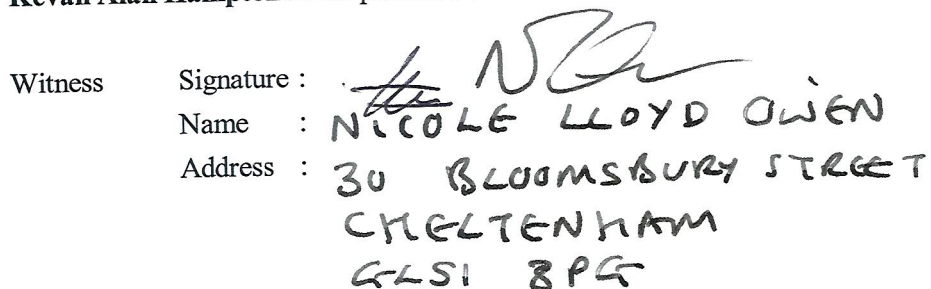 Kevan Alan
Witness Signature :
Name : NICOLE LLOYD OWEN
Address : 30 BLOOMSBURY STREET
CHELTENHAM
GL51 8PG